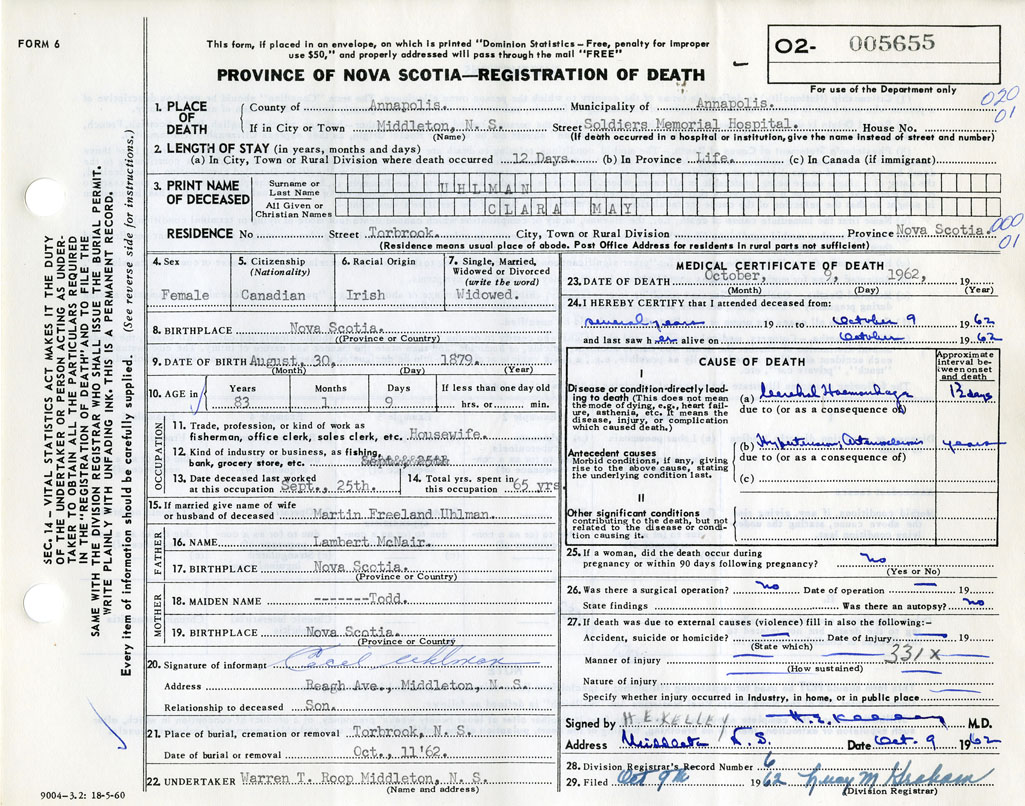 FORM 6
This form, if placed in an envelope, on which is printed "Dominion Statistics—Free, penalty for improper
use $50," and properly addressed will pass through the mail "FREE"
PROVINCE OF NOVA SCOTIA—REGISTRATION OF DEATH
O2- 005655
For use of the Department only
020
01
1. PLACE OF DEATH
County of Annapolis. Municipality of Annapolis.
If in City or Town Middleton, N. S. Street Soldiers Memorial Hospital. House No.
(Name) (If death occurred in a hospital or institution, give the name instead of street and number)
2. LENGTH OF STAY (in years, months and days)
(a) In City, Town or Rural Division where death occurred 12 Days. (b) In Province Life. (c) In Canada (if immigrant)
3. PRINT NAME OF DECEASED
Surname or Last Name UHLMAN
All Given or Christian Names CLARA MAY
000
01
RESIDENCE No Street Torbrook. City, Town or Rural Division Province Nova Scotia.
(Residence means usual place of abode. Post Office Address for residents in rural parts not sufficient)
4. Sex
Female
5. Citizenship
(Nationality)
Canadian
6. Racial Origin
Irish
7. Single, Married,
Widowed or Divorced
(write the word)
Widowed.
8. BIRTHPLACE Nova Scotia.
((Province or Country)
9. DATE OF BIRTH August, 30, 1879.
(Month) (Day) (Year)
10. AGE in
Years Months Days If less than one day old
83 1 9 hrs. or min.
OCCUPATION
11. Trade, profession, or kind of work as
fisherman, office clerk, sales clerk, etc. Housewife.
12. Kind of industry or business, as fishing,
bank, grocery store, etc.
13. Date deceased last worked
at this occupation Sept., 25th.
14. Total yrs. spent in
this occupation 65 yrs.
15. If married give name of wife
or husband of deceased Martin Freeland Uhlman.
FATHER
16. NAME Lambert McNair.
17. BIRTHPLACE Nova Scotia.
(Province or Country)
MOTHER
18. MAIDEN NAME -------Todd.
19. BIRTHPLACE Nova Scotia.
(Province or Country)
20. Signature of informant Uhlman
Address Reagh Ave., Middleton, N. S.
Relationship to deceased Son.
21. Place of burial, cremation or removal Torbrook, N. S.
Date of burial or removal Oct., 11'62.
22. UNDERTAKER Warren T. Roop Middleton, N. S.
(Name and address)
MEDICAL CERTIFICATE OF DEATH
23. DATE OF DEATH October, 9, 1962, 19
(Month) (Day) (Year)
24. I HEREBY CERTIFY that I attended deceased from:
several years 19 to October 9 1962
and last saw her alive on October 1962
CAUSE OF DEATH
Approximate
interval be-
tween onset
and death
I
Disease or condition directly lead-
ing to death (This does not mean
the mode of dying, e.g., heart fail-
ure, asthenia, etc. It means the
disease, injury, or complication
which caused death.)
(a) Cerebral Haemorrhage 12 days
due to (or as a consequence of)
Antecedent causes
Morbid conditions, if any, giving
rise to the above cause, stating
the underlying condition last.
(b) Hypertension, Arteriosclerosis years
due to (or as a consequence of)
(c)
II
Other significant conditions
contributing to the death, but not
related to the disease or condi-
tion causing it.
25. If a woman, did the death occur during
pregnancy or within 90 days following pregnancy? no
(Yes or No)
26. Was there a surgical operation? no Date of operation — 19
State findings Was there an autopsy? no
27. If death was due to external causes (violence) fill in also the following:-
Accident, suicide or homicide? — Date of injury — 19
(State which)
Manner of injury 331x
(How sustained)
Nature of injury
Specify whether injury occurred in industry, in home, or in public place
Signed by H E. KELLEY H. E. Kelley M.D.
Address Middleton N.S. Date Oct. 9 1962
28. Division Registrar's Record Number 6
29. Filed Oct 9th 1962 Lucy M Graham
(Division Registrar)
SEC. 14—VITAL STATISTICS ACT MAKES IT THE DUTY
OF THE UNDERTAKER OR PERSON ACTING AS UNDER-
TAKER TO OBTAIN ALL THE PARTICULARS REQUIRED
IN THE "REGISTRATION OF DEATH" AND TO FILE THE
SAME WITH THE DIVISION REGISTRAR WHO SHALL ISSUE THE BURIAL PERMIT.
WRITE PLAINLY WITH UNFADING INK. THIS IS A PERMANENT RECORD.
Every item of information should be carefully supplied. (See reverse side for instructions.)
9004-3.2: 18-5-60